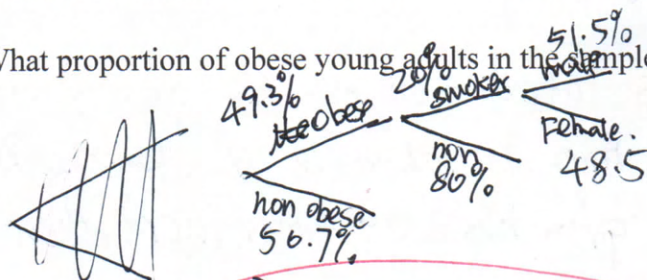 What proportion of obese young adults in the sample
49.3% obese
20% smoker
51.5% male
non obese 56.7%
non 80%
Female.
48.5